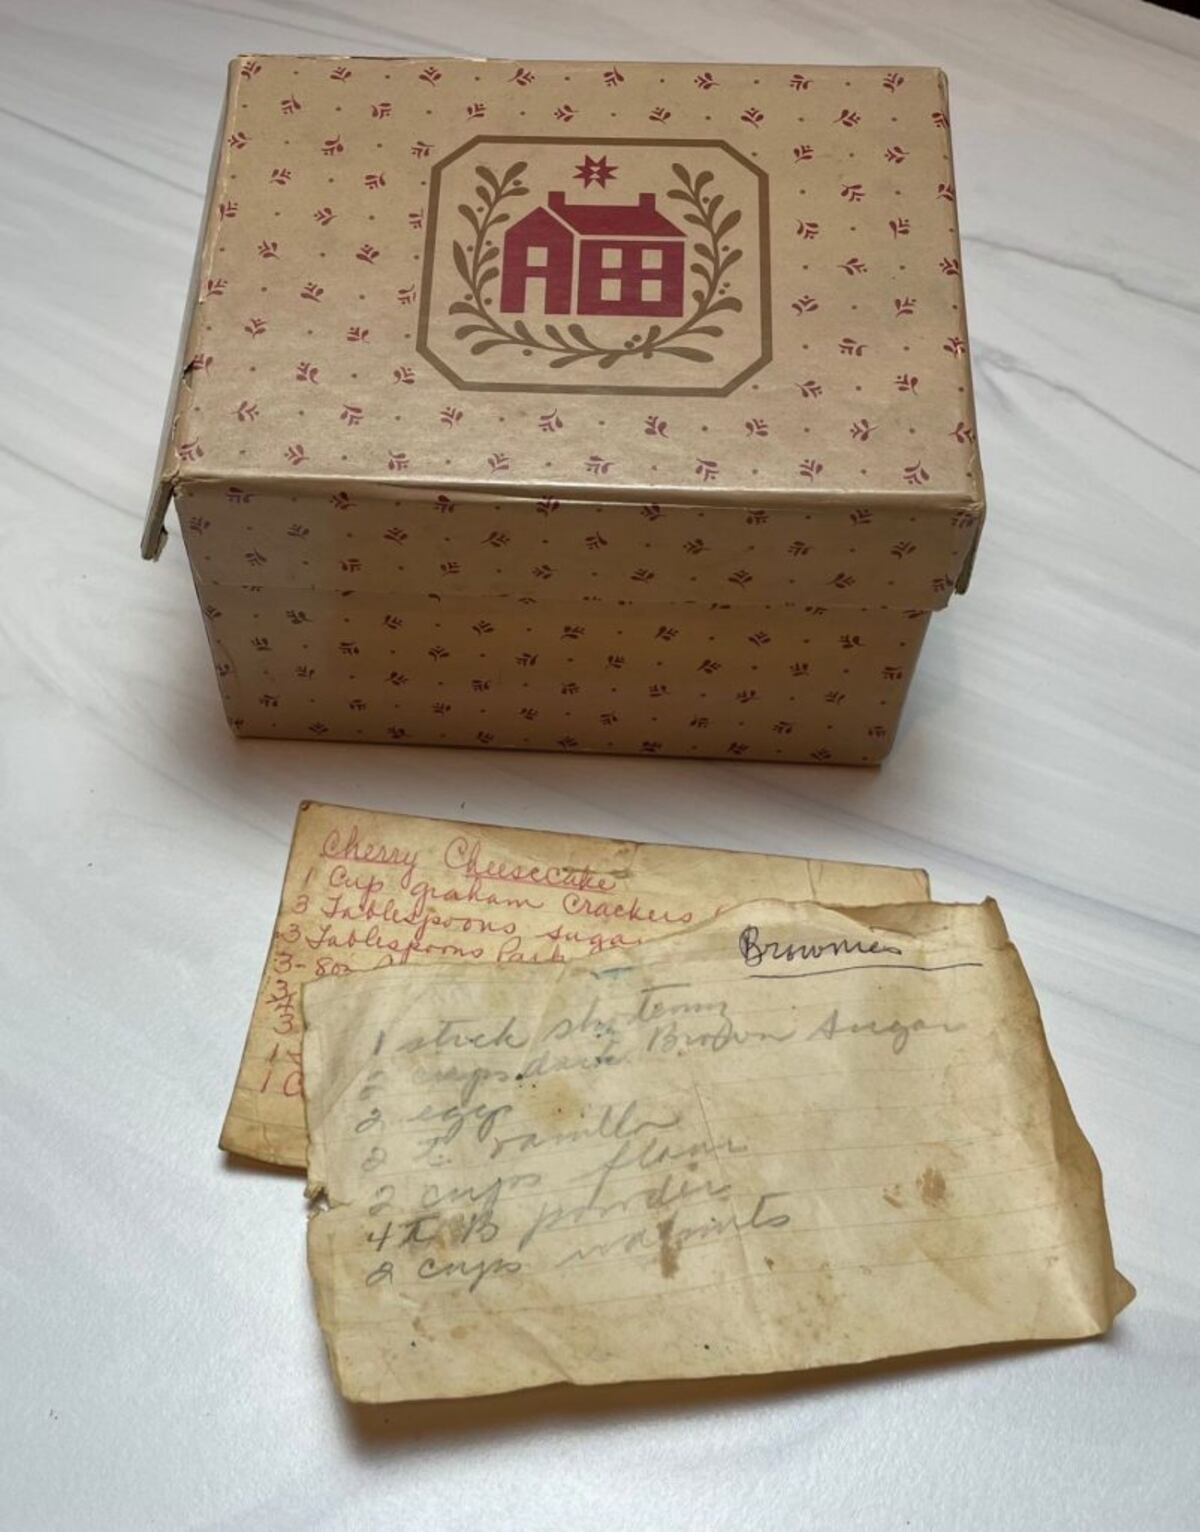 Cherry Cheesecake
1 Cup graham Crackers
3 Tablespoons sugar
3 Tablespoons
3- 8oz
3
3
1
1 C
Brownies
1 stick shortening
2 cups dark Brown Sugar
2 eggs
2 t. vanilla
2 cups flour
4 t B powder
2 cups walnuts